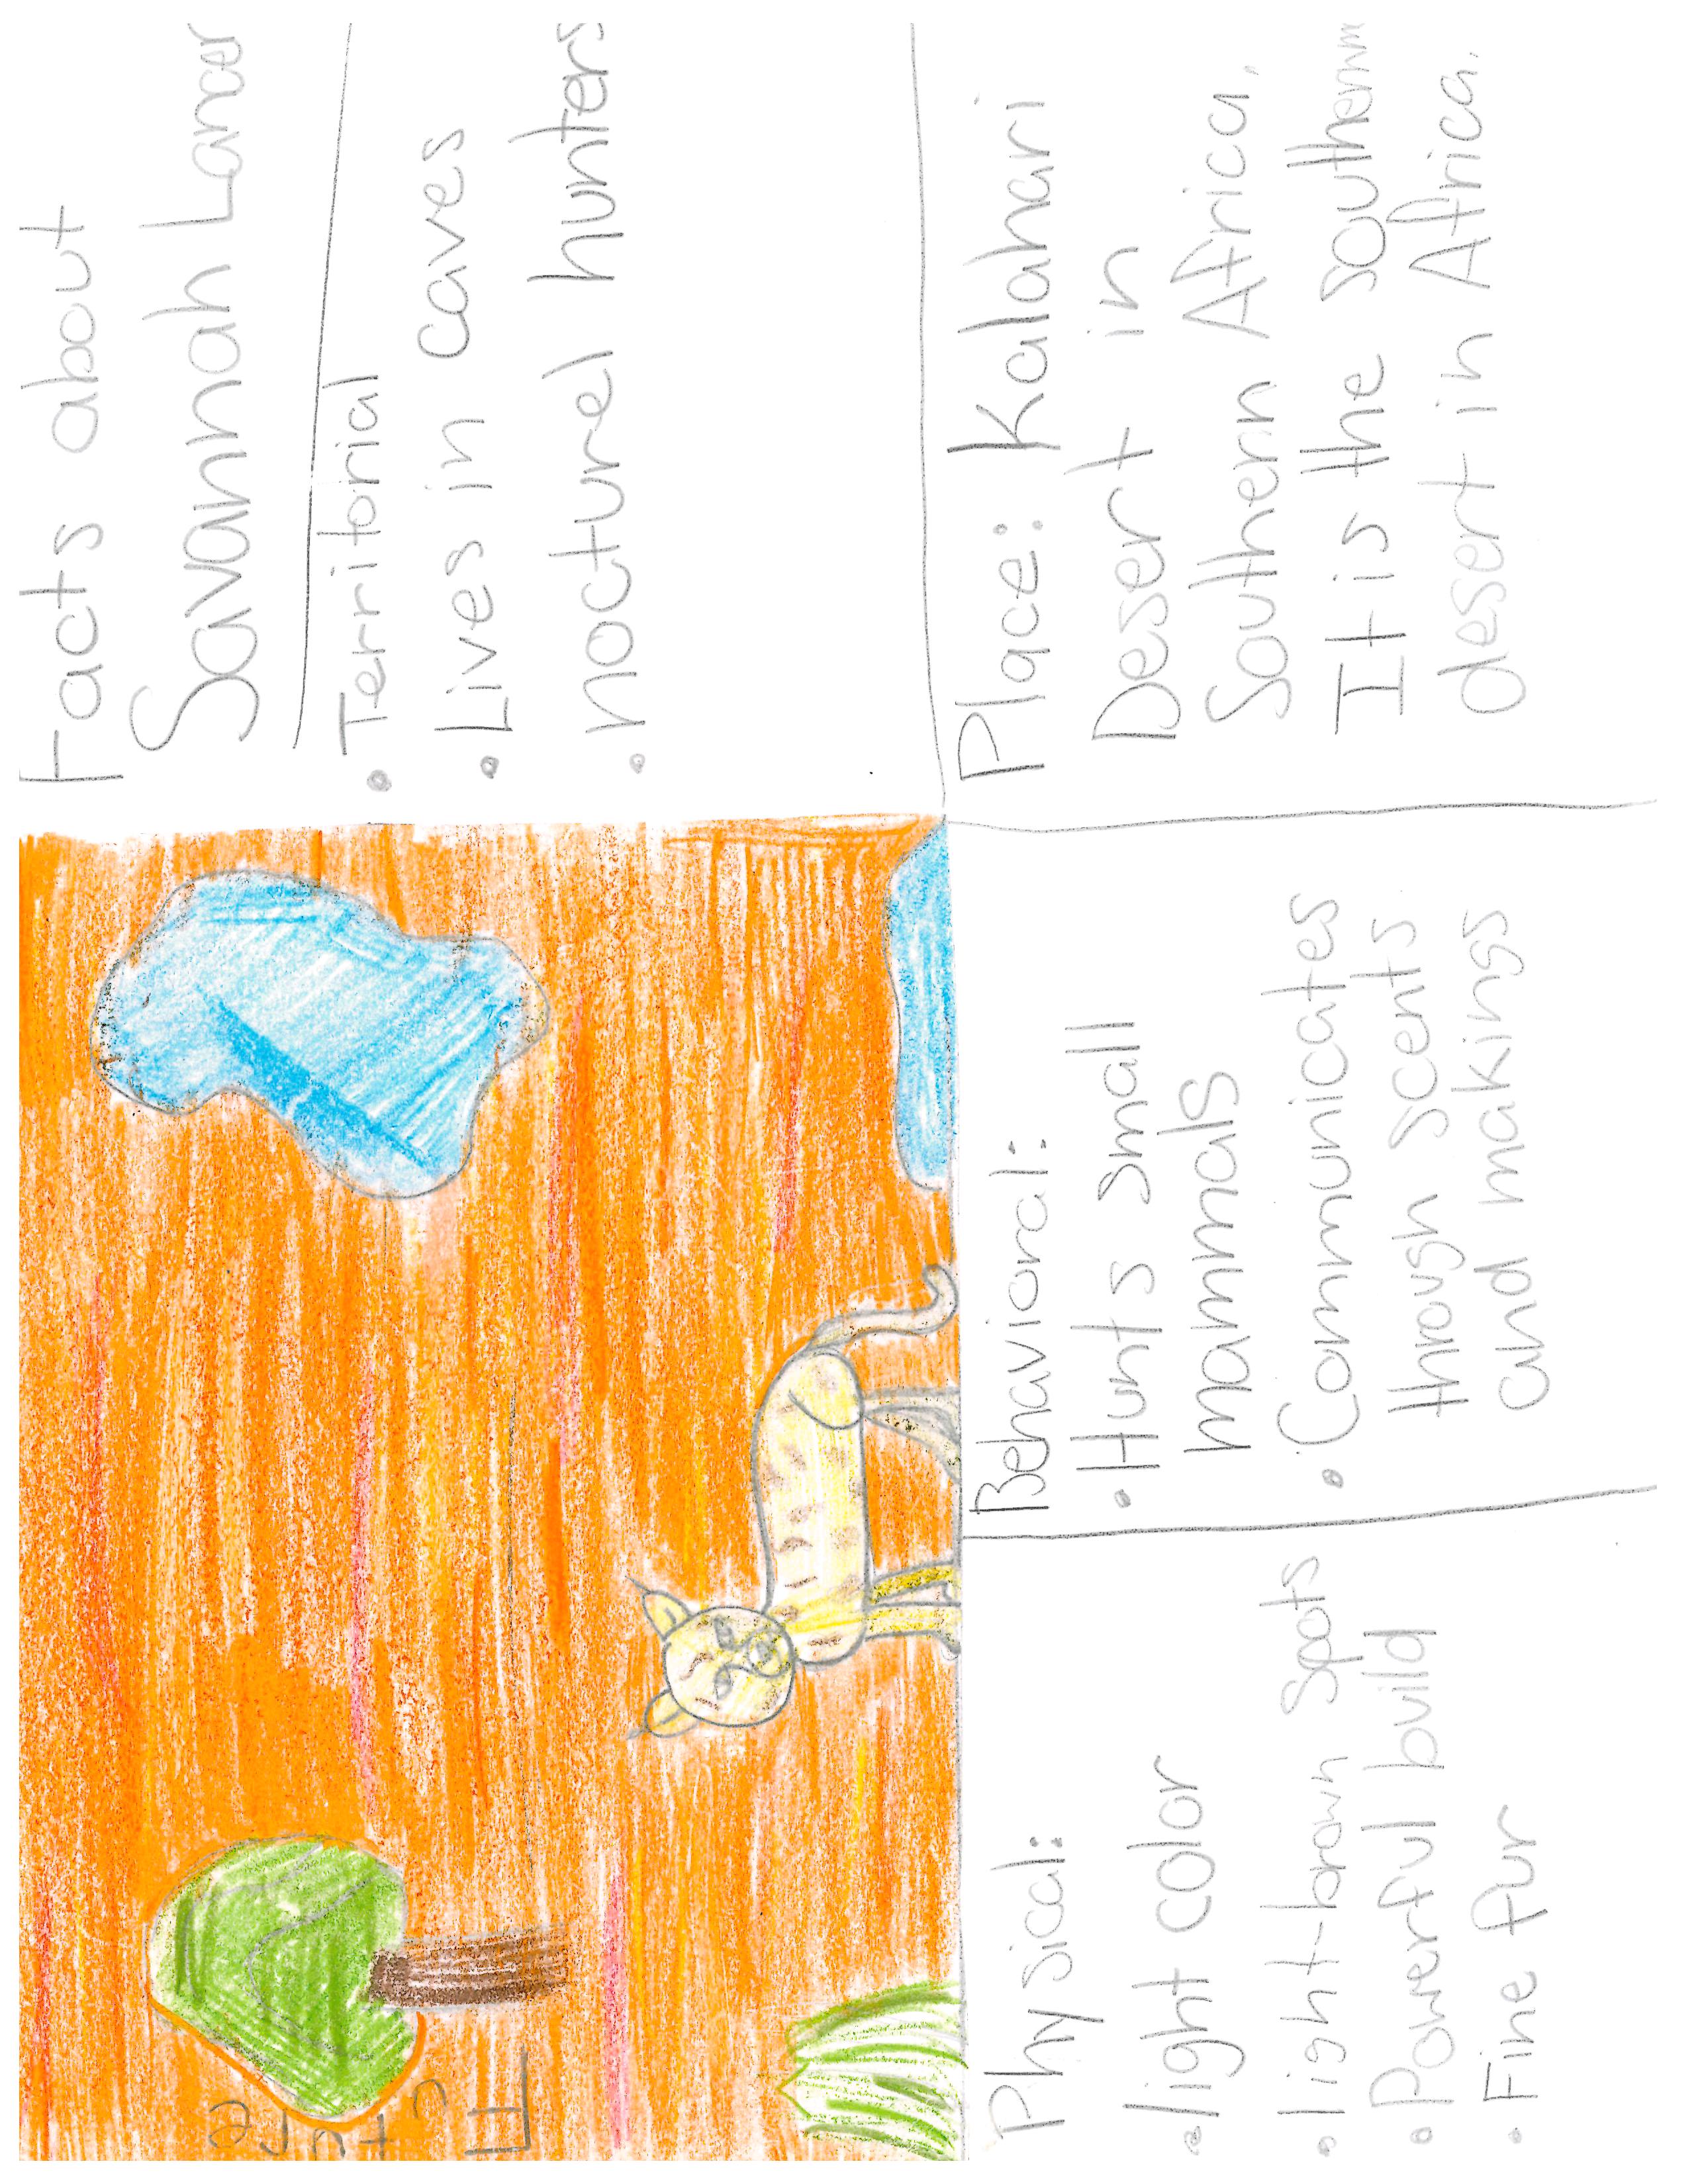 Future
Facts about
Savannah Lancer
• Territorial
• Lives in caves
• nocturel hunters
Physical:
• light color
• light-brown spots
• Powerful build
• Fine fur
Behavioral:
• Hunts small
mammals
• Communicates
through scents
and makings
Place: Kalahari
Desert in
Southern Africa.
It is the southernm
desert in Africa.